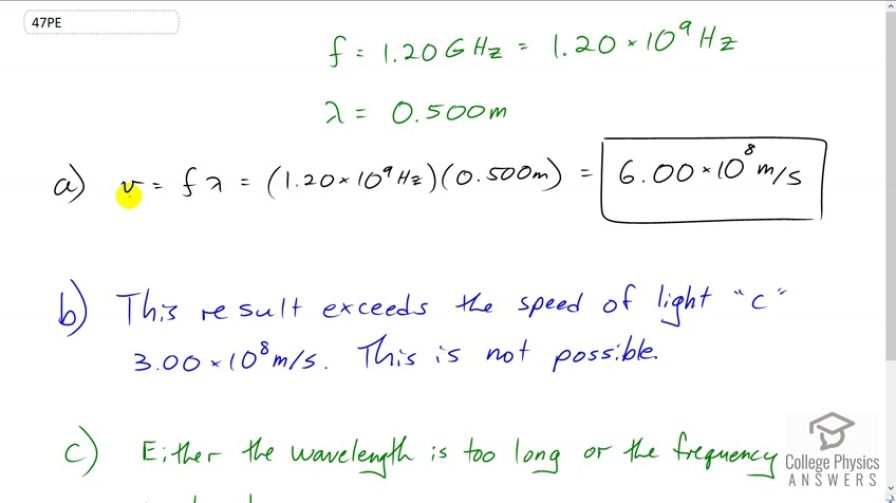 47PE
f = 1.20 GHz = 1.20 × 10⁹ Hz
λ = 0.500m
a) v = f λ = (1.20 × 10⁹ Hz)(0.500m) = 6.00 × 10⁸ m/s
b) This result exceeds the speed of light "c"
3.00 × 10⁸ m/s. This is not possible.
c) Either the wavelength is too long or the frequency
College Physics
ANSWERS